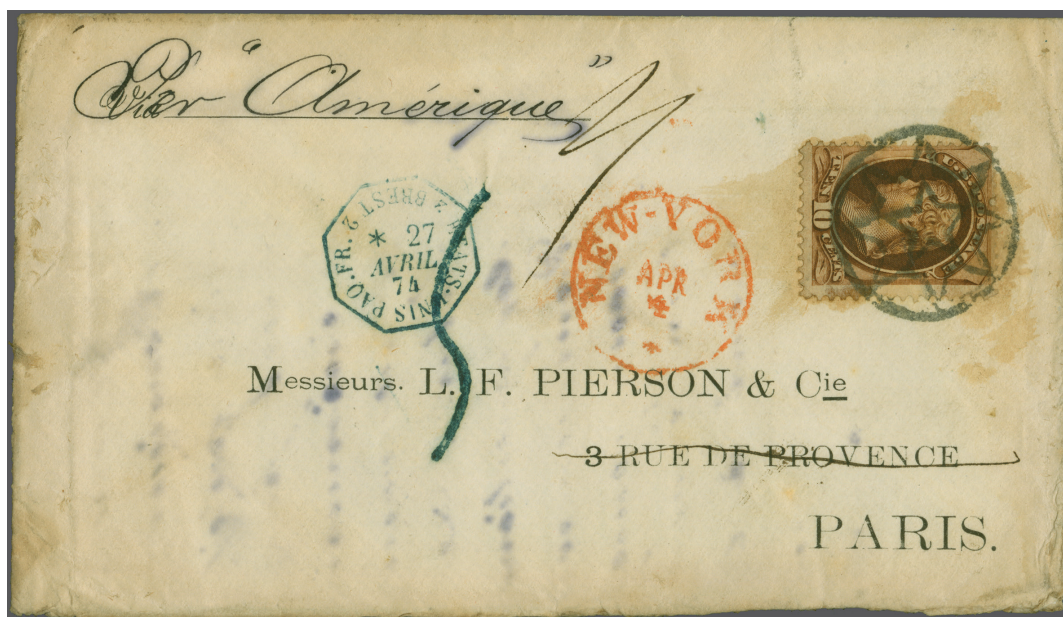 Per "Amérique"
ETATS-UNIS PAQ. FR. 2 BREST
* 27
AVRIL
74
NEW-YORK
APR
4
*
U.S. POSTAGE
10
TEN CENTS
Messieurs. L. F. PIERSON & Cie
3 RUE DE PROVENCE
PARIS.